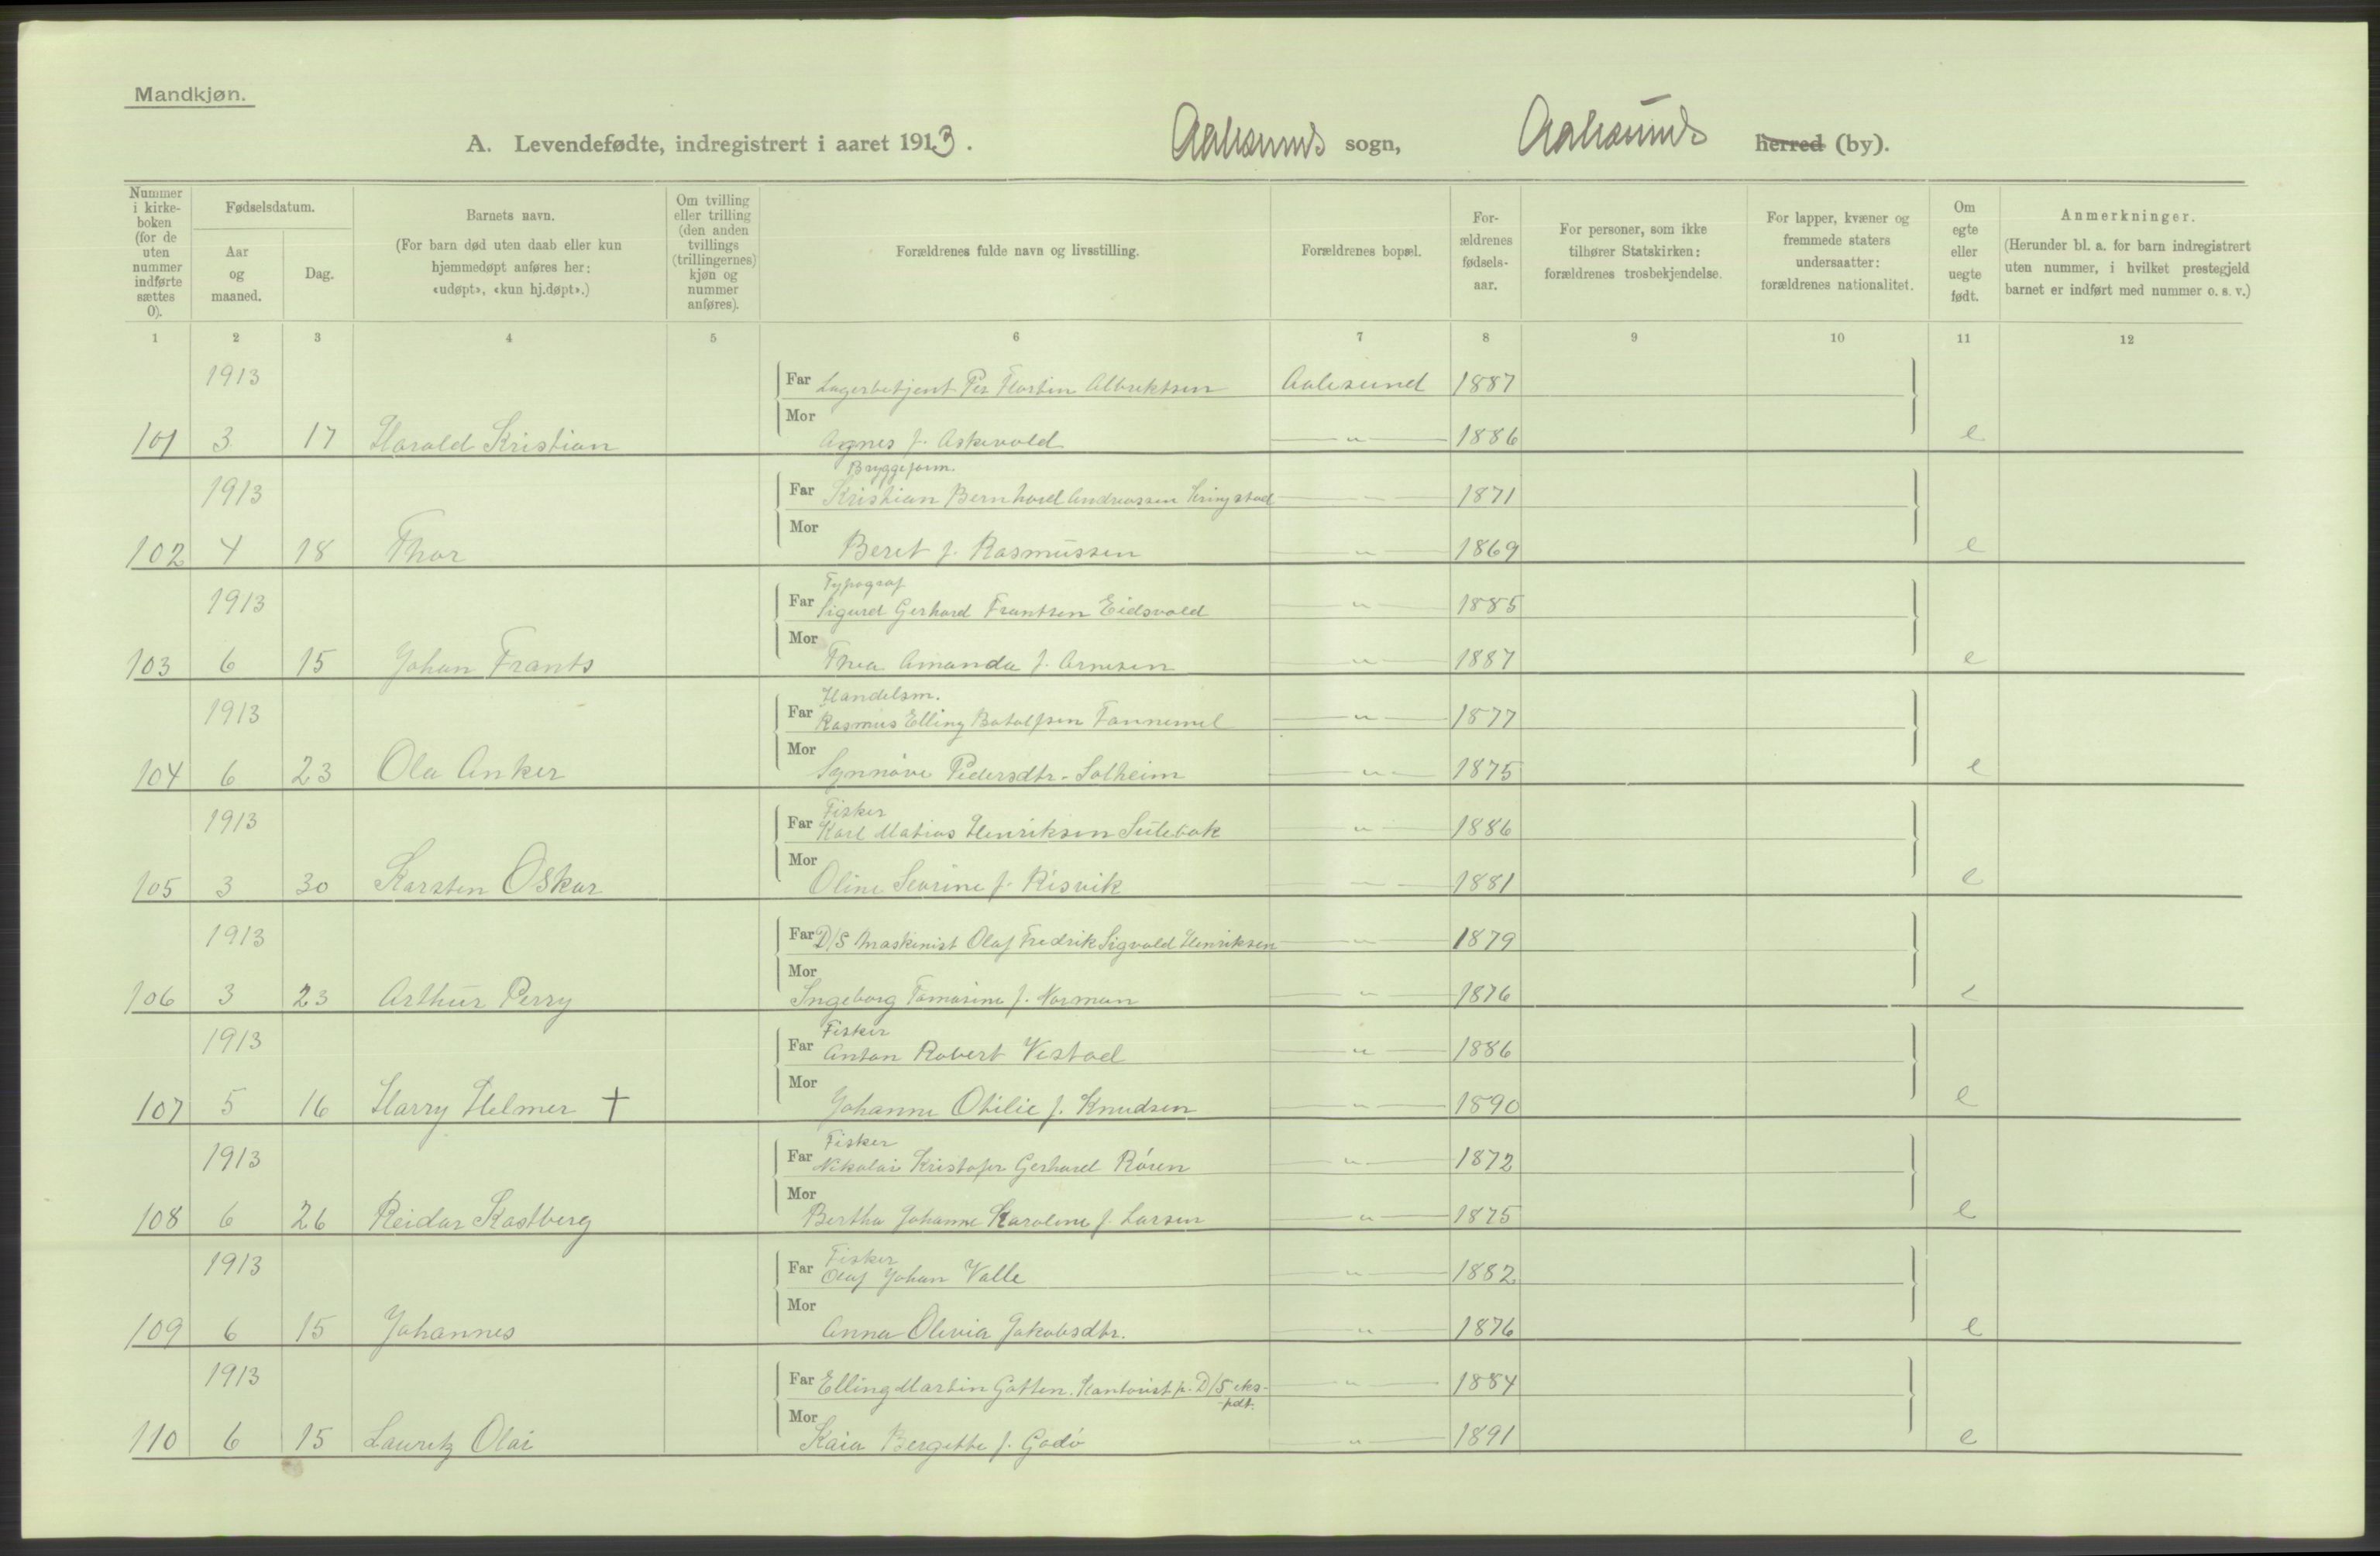 Mandkjøn.
A. Levendefødte, indregistrert i aaret 1913. Aalesunds sogn, Aalesunds herred (by).
Nummer i kirke-boken (for de uten nummer indførte sættes 0).
Fødselsdatum.
Aar og maaned.
Dag.
Barnets navn.
(For barn død uten daab eller kun hjemmedøpt anføres her: «udøpt», «kun hj.døpt».)
Om tvilling eller trilling (den anden tvillings (trillingernes) kjøn og nummer anføres).
Forældrenes fulde navn og livsstilling.
Forældrenes bopæl.
For-ældrenes fødsels-aar.
For personer, som ikke tilhører Statskirken: forældrenes trosbekjendelse.
For lapper, kvæner og fremmede staters undersaatter: forældrenes nationalitet.
Om egte eller uegte født.
Anmerkninger.
(Herunder bl. a. for barn indregistrert uten nummer, i hvilket prestegjeld barnet er indført med nummer o. s. v.)
1 2 3 4 5 6 7 8 9 10 11 12
1913 Far Lagerbetjent Per Martin Albrektsen Aalesund 1887
101 3 17 Harald Kristian Mor Agnes f. Askevold — " — 1886 e
Bryggeform.
1913 Far Kristian Bernhard Andreassen Kringstad — " — 1871
102 4 18 Thor Mor Beret f. Rasmussen — " — 1869 e
Typograf
1913 Far Sigurd Gerhard Frantsen Eidsvold — " — 1885
103 6 15 Johan Frants Mor Thea Amanda f. Arnesen — " — 1887 e
Handelsm.
1913 Far Rasmus Elling Botolfsen — " — 1877
104 6 23 Ola Anker Mor Synnøve Pedersdtr. Solheim — " — 1875 e
Fisker
1913 Far Karl Matias Henriksen Sulebak — " — 1886
105 3 30 Karsten Oskar Mor Oline Severine f. Risvik — " — 1881 e
1913 Far D/S Maskinist Olaf Fredrik Sigvald Henriksen — " — 1879
106 3 23 Arthur Perry Mor Ingeborg Tomasine f. Norman — " — 1876 e
Fisker
1913 Far Anton Robert Vestad — " — 1886
107 5 16 Harry Helmer † Mor Johanne Otilie f. Knudsen — " — 1890 e
Fisker
1913 Far Nikolai Kristofer Gerhard Røren — " — 1872
108 6 26 Reidar Kastberg Mor Bertha Johanne Karoline f. Larsen — " — 1875 e
Fisker
1913 Far Olaf Johan Valle — " — 1882
109 6 15 Johannes Mor Anna Olivia Jakobsdtr. — " — 1876 e
1913 Far Elling Martin Giotten. Kontorist p. D/S eks-pdt. — " — 1884
110 6 15 Lauritz Olai Mor Kaia Bergitte f. Godø — " — 1891 e